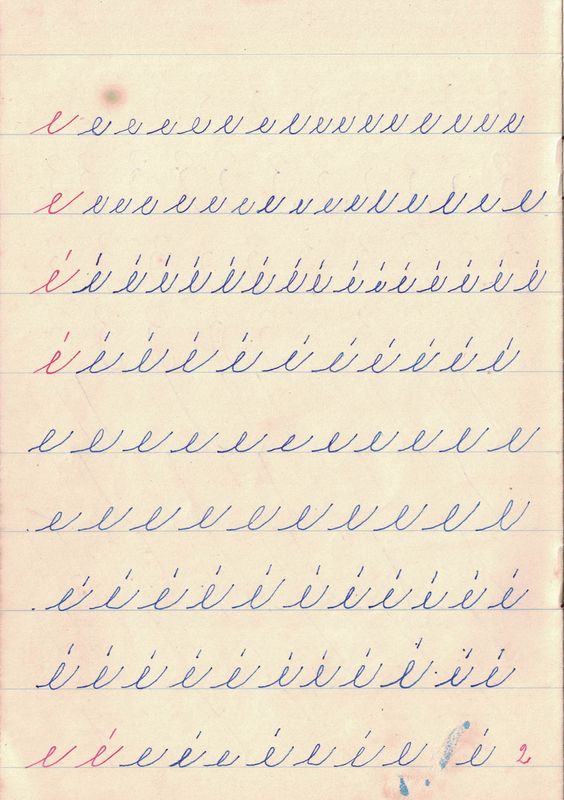 e e e e e e e e e e e e e e e e
e e e e e e e e e e e e e e e e
é é é é é é é é é é é é é é é é
é é é é é é é é é é é
e e e e e e e e e e e
e e e e e e e e e e
é é é é é é é é é é é
é é é é é é é é é é é
e é e é e é e é e é 2